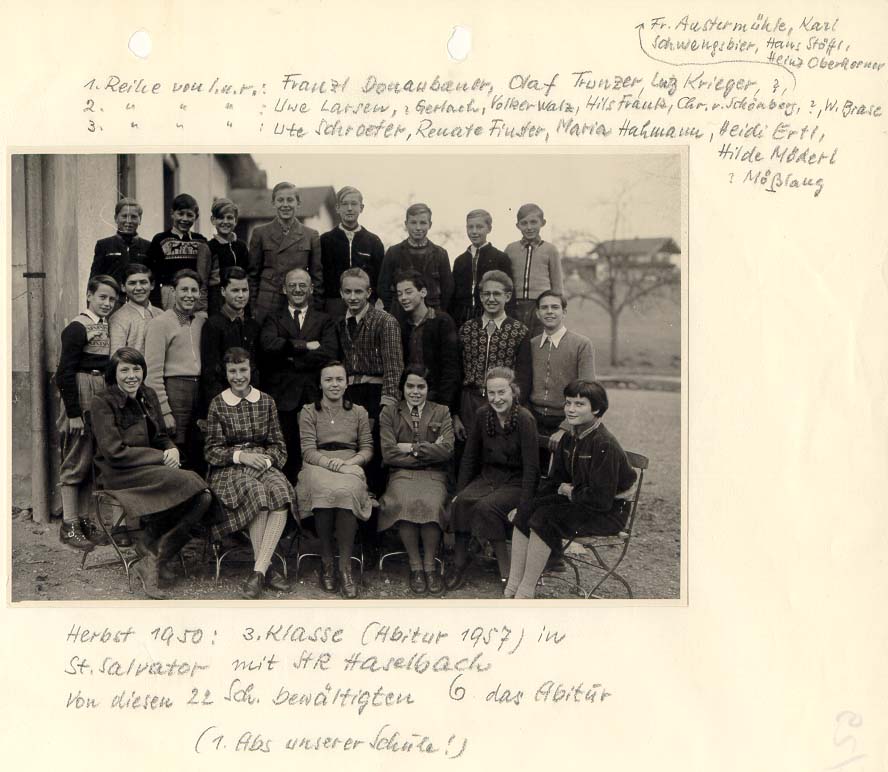 Fr. Austermühle, Karl
Schwengsbier, Hans Stöffl,
Heinz Oberkorner
1. Reihe von l.n.r.: Franzl Donaubauer, Olaf Trunzer, Lutz Krieger, ?,
2. " " " : Uwe Larsen, ? Gerlach, Volker Walz, Hils Frank, Chr. v. Schönberg, ?, W. Brase
3. " " " : Ute Schroeter, Renate Finster, Maria Hahmann, Heidi Ertl,
Hilde Möderl
? Mößlang
Herbst 1950: 3. Klasse (Abitur 1957) in
St. Salvator mit StR Haselbach
Von diesen 22 Sch. bewältigten 6 das Abitur
(1. Abs unserer Schule!)